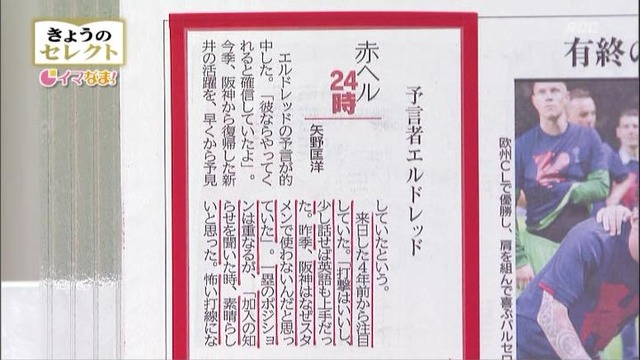 きょうの
セレクト
イマなま!
RBC
赤ヘル
24時
矢野匡洋
予言者エルドレッド
エルドレッドの予言が的
中した。「彼ならやってく
れると確信していたよ」。
今季、阪神から復帰した新
井の活躍を、早くから予見
していたという。
来日した4年前から注目
していた。「打撃はいいし、
少し話せば英語も上手だっ
た。昨季、阪神はなぜスタ
メンで使わないんだと思っ
ていた」。一塁のポジショ
ンは重なるが、「加入の知
らせを聞いた時、素晴らし
いと思った。怖い打線にな
有終の
欧州CLで優勝し、肩を組んで喜ぶバルセロ